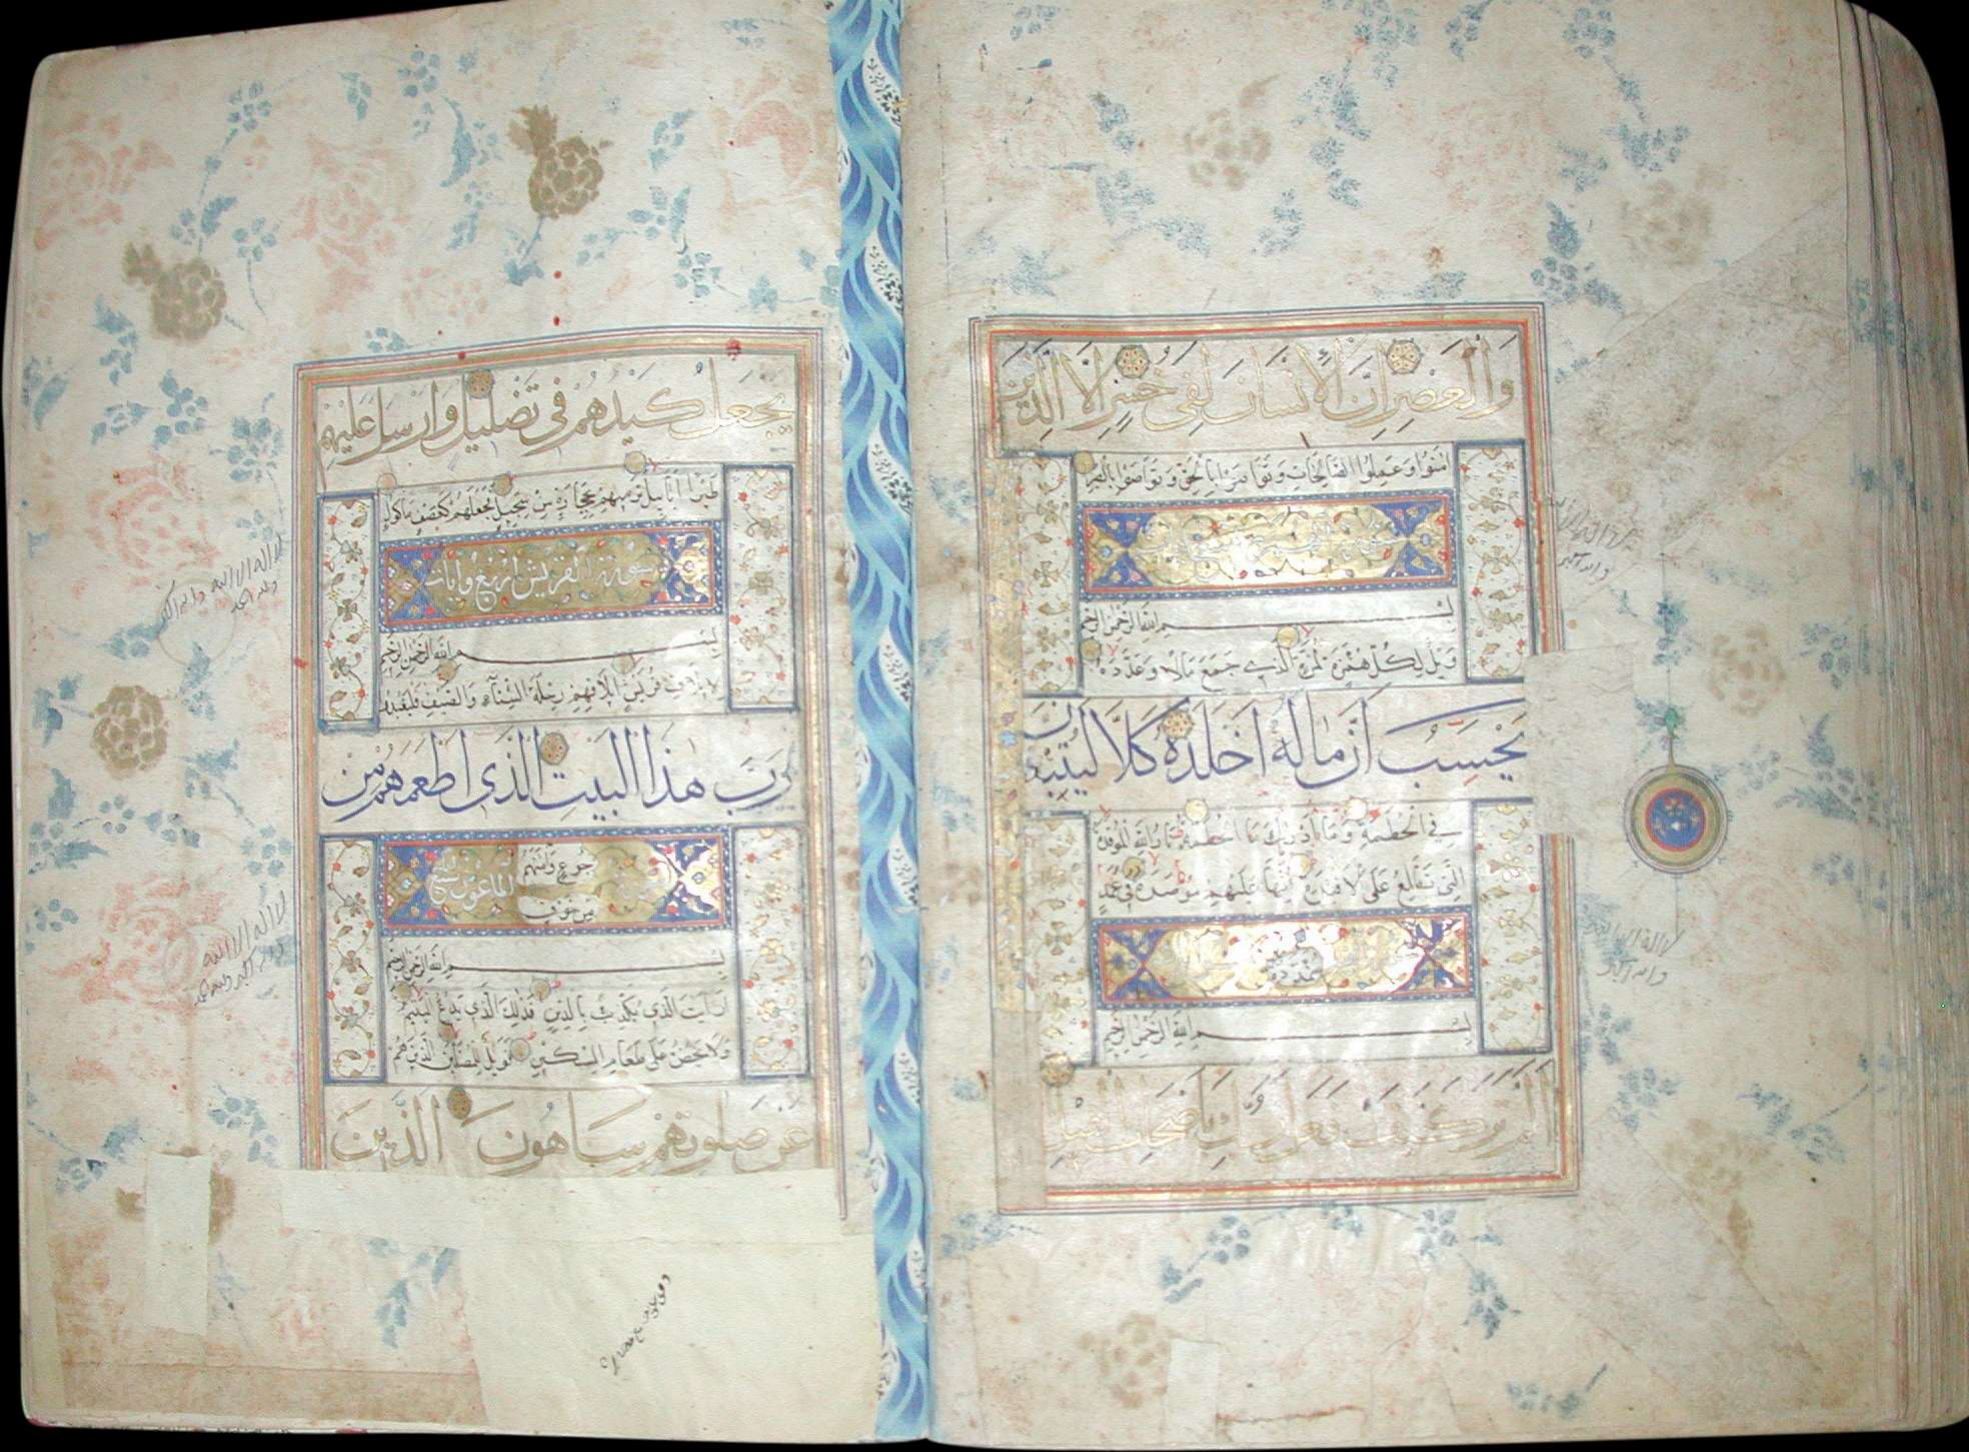 والعصر ان الانسان لفى خسر الا الذين
امنوا وعملوا الصالحات وتواصوا بالحق وتواصوا بالصبر
بسم الله الرحمن الرحيم
ويل لكل همزة لمزة الذى جمع مالا وعدده
يحسب ان ماله اخلده كلا لينبذن
فى الحطمة وما ادريك ما الحطمة نار الله الموقدة
التى تطلع على الافئدة انها عليهم موصدة فى عمد
ممددة
بسم الله الرحمن الرحيم
الم تر كيف فعل ربك باصحاب الفيل
لا اله الا الله
والله اكبر
يجعل كيدهم فى تضليل وارسل عليهم
طيرا ابابيل ترميهم بحجارة من سجيل فجعلهم كعصف ماكول
سورة القريش اربع وايات
بسم الله الرحمن الرحيم
لايلاف قريش ايلافهم رحلة الشتاء والصيف فليعبدوا
رب هذا البيت الذى اطعمهم من
جوع وامنهم
من خوف
الماعون
بسم الله الرحمن الرحيم
ارايت الذى يكذب بالدين فذلك الذى يدع اليتيم
ولا يحض على طعام المسكين فويل للمصلين الذين هم
عن صلوتهم ساهون الذين
لا اله الا الله والله اكبر
ولله الحمد
لا اله الا الله
والله اكبر ولله الحمد